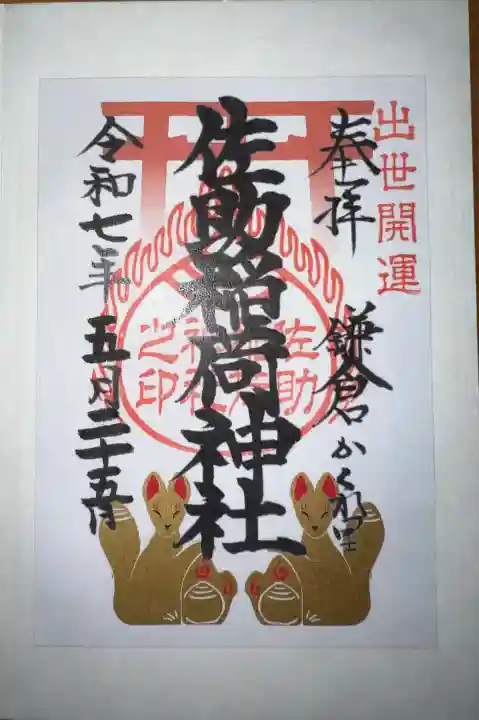 出世開運
奉拝
鎌倉かくれ里
佐助稲荷神社
佐助稲荷神社之印
令和七年五月二十五日